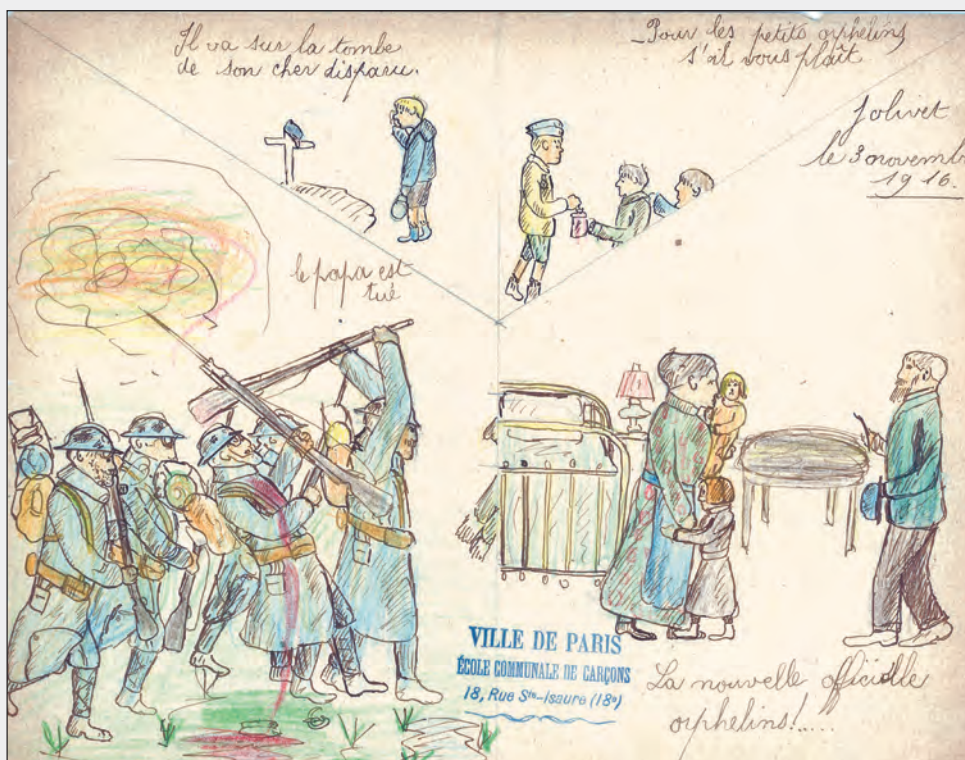 Il va sur la tombe
de son cher disparu.
_Pour les petits orphelins
s'il vous plaît
Jolivet
le 3 novemb
1916.
le papa est
tué
VILLE DE PARIS
ÉCOLE COMMUNALE DE GARÇONS
18, Rue Ste-Isaure (18e)
La nouvelle officielle
orphelins!.....